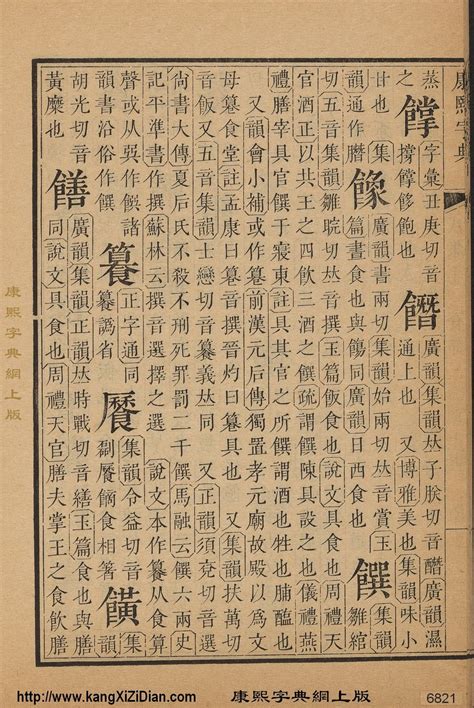 康熙字典
蒸饓字彙丑庚切音廣韻集韻𠀤子朕切音廣韻濕
之撐饓飽也通上也又博雅美也集韻味小
甘也集廣韻書兩切集韻始兩切音賞玉饌
韻通作朁篇晝食也與餳同廣韻日西食也雒綰
切音五音集韻雛晥切𠀤音撰玉篇飯食也說文具食也周禮天
官酒正以共王之四飲三酒之饌疏謂饌陳具設之也儀禮燕
禮膳宰具官饌于寢東註具其官之所饌謂酒也牲也脯醢也
又韻會小補或作篹前漢元后傳獨置孝元廟故殿以爲文
母篹食堂註孟康曰篹音撰晉灼曰篹具也又集韻扶萬切
音飯又五音集韻士戀切音篹義𠀤同又正韻須兗切音選
尚書大傳夏后氏不殺不刑死罪罰二千饌馬融云饌六兩史
記平準書作撰蘇林云撰音選擇之選說文本作籑从食算
聲或从巽作饌諸正字通同集韻令益切音
韻書沿俗作饌籑譌省食相箸
胡光切音饍廣韻集韻正韻𠀤時戰切音繕玉篇食也與膳
黃糜也同說文具食也周禮天官膳夫掌王之食飲膳
康熙字典網上版
http://www.kangXiZiDian.com
康熙字典網上版
6821